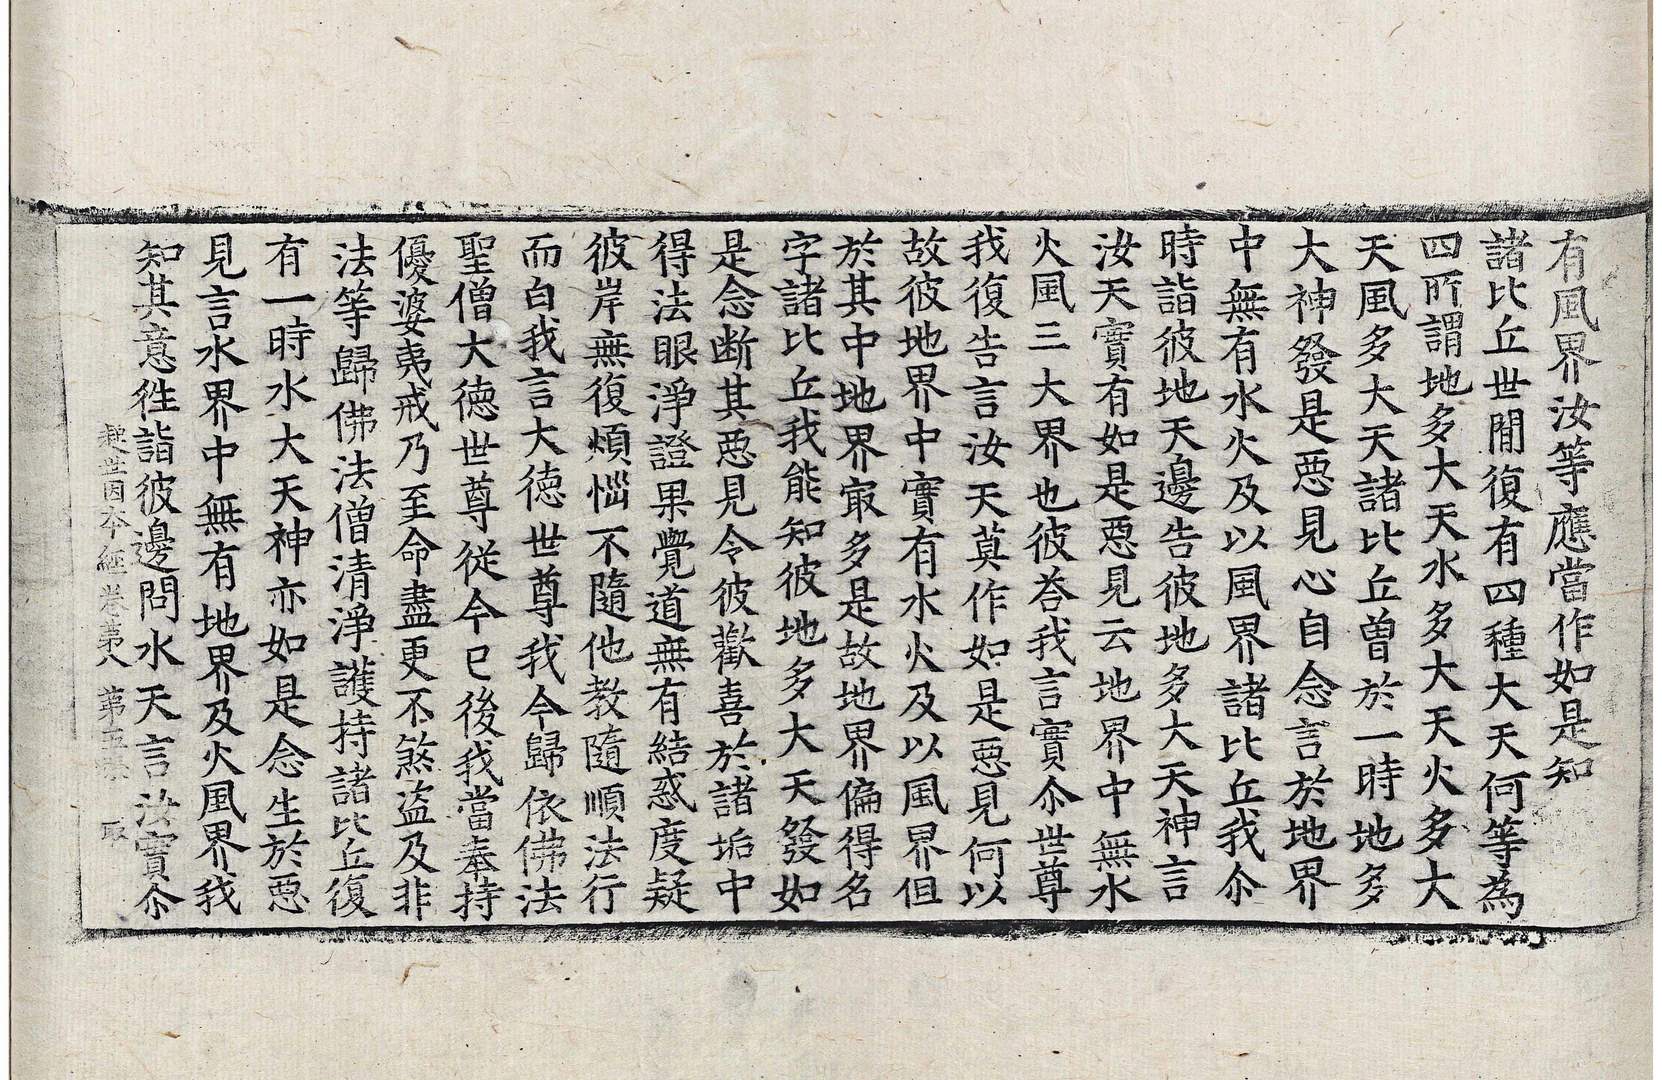 有風界汝等應當作如是知
諸比丘世間復有四種大天何等為
四所謂地多大天水多大天火多大
天風多大天諸比丘曾於一時地多
大神發是惡見心自念言於地界
中無有水火及以風界諸比丘我尒
時詣彼地天邊告彼地多大天神言
汝天實有如是惡見云地界中無水
火風三大界也彼荅我言實尒世尊
我復告言汝天莫作如是惡見何以
故彼地界中實有水火及以風界但
於其中地界㝡多是故地界偏得名
字諸比丘我能知彼地多大天發如
是念断其惡見令彼歡喜於諸垢中
得法眼淨證果覺道無有結惑度疑
彼岸無復煩惱不隨他教隨順法行
而白我言大德世尊我今歸依佛法
聖僧大德世尊從今已後我當奉持
優婆夷戒乃至命盡更不煞盜及非
法等歸佛法僧清淨護持諸比丘復
有一時水大天神亦如是念生於惡
見言水界中無有地界及火風界我
知其意徃詣彼邊問水天言汝實尒
起世因本經卷第八 第五張 取